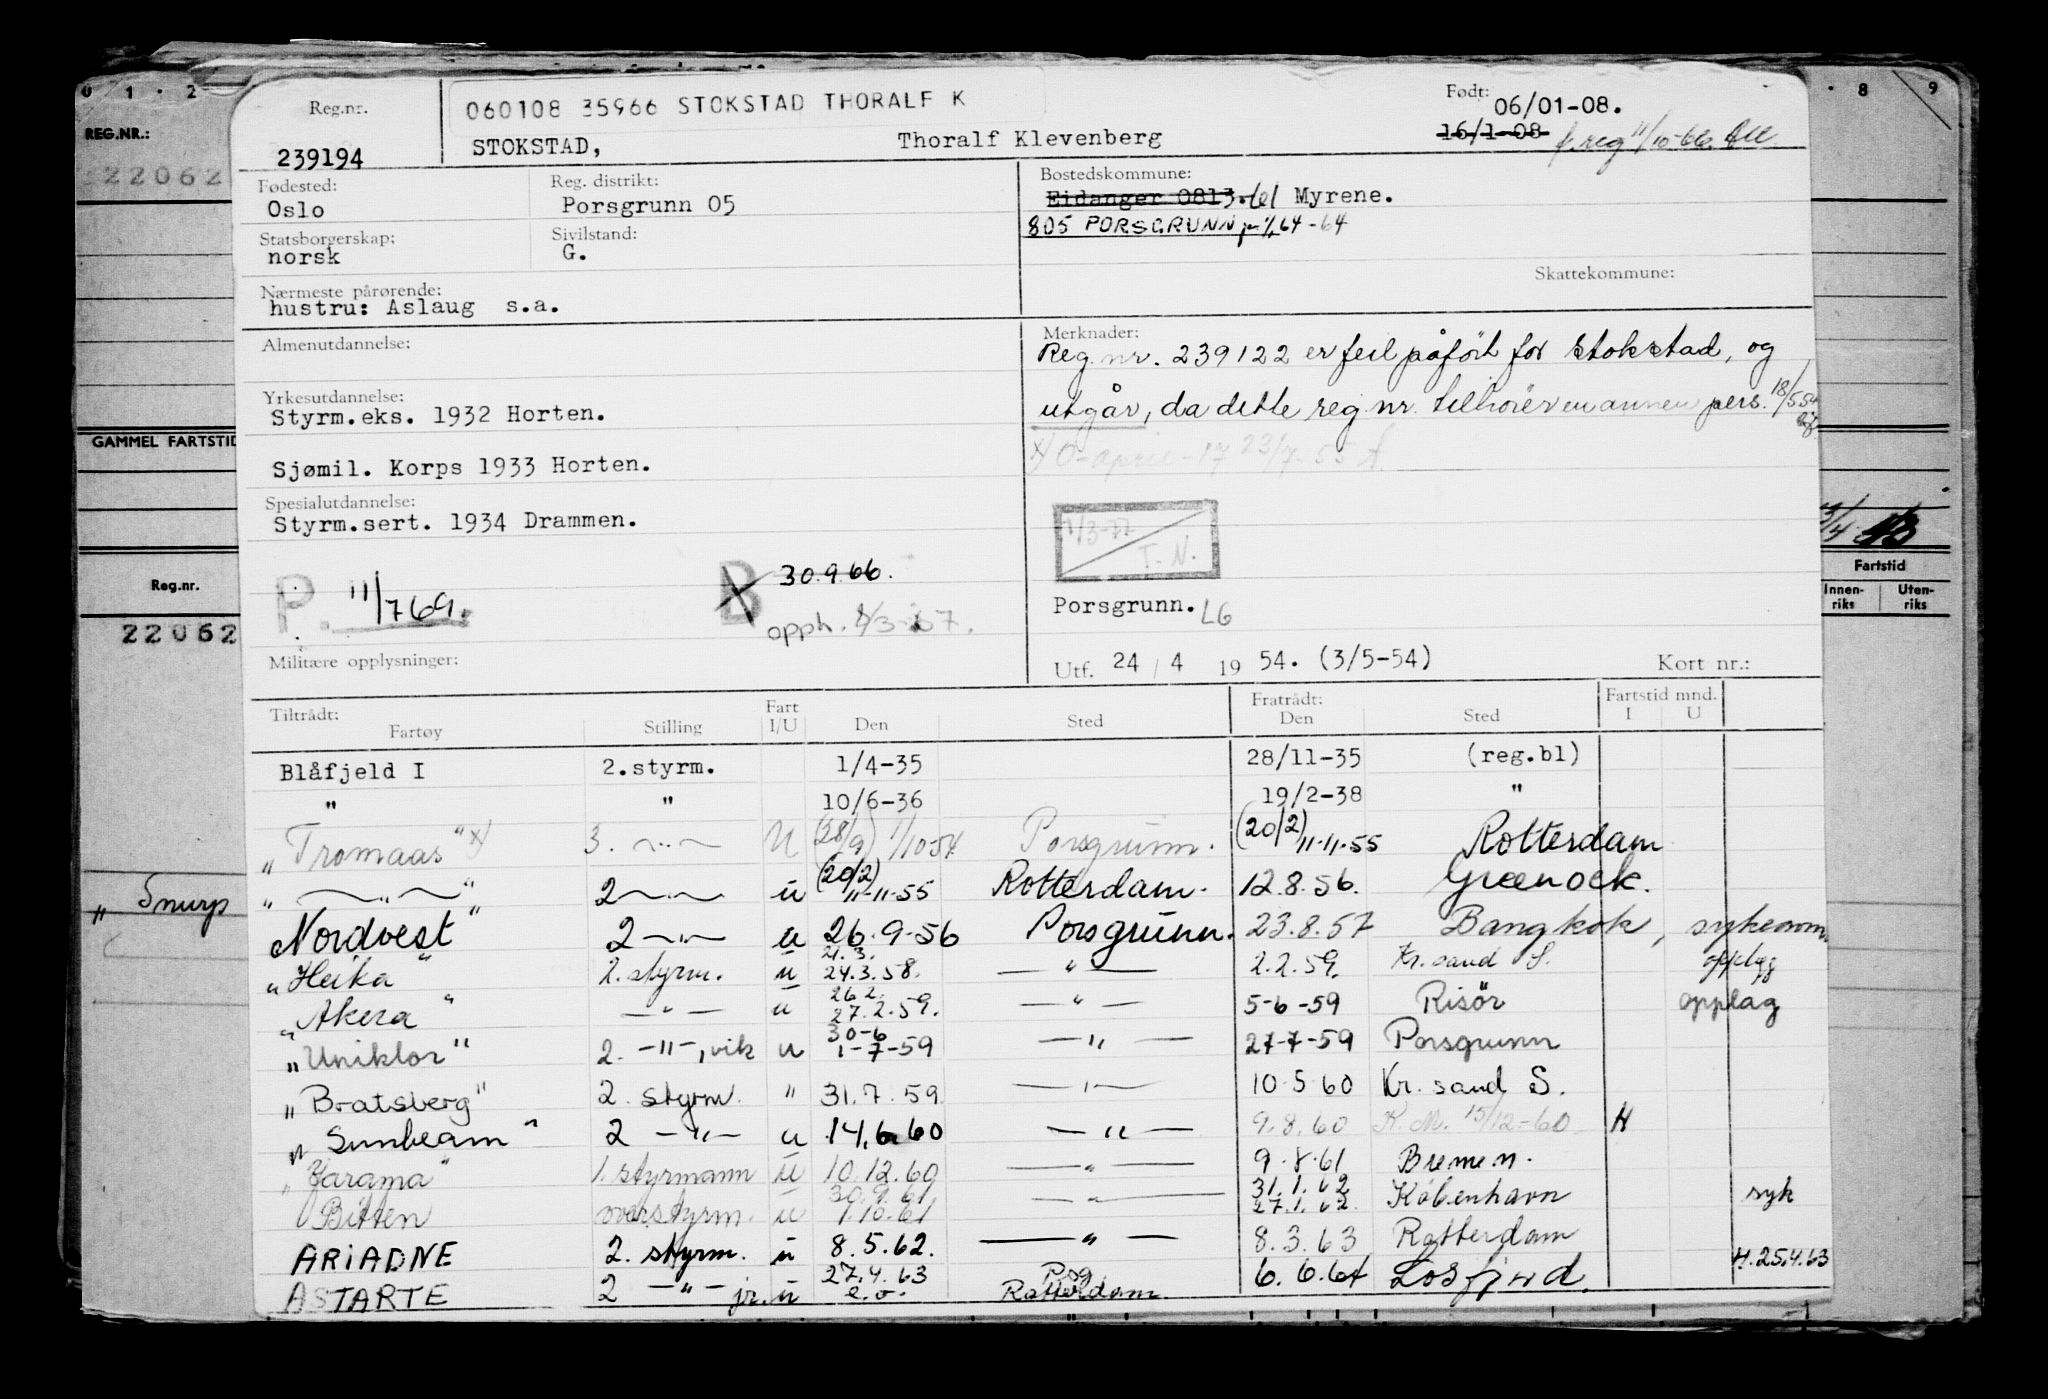 0 1 . 2 . 8 9
REG.NR.:
22062
GAMMEL FARTSTID
Reg.nr.
22062
„ Snurp
Fartstid
Innen-riks Uten-riks
Reg.nr.
239194
060108 35966 STOKSTAD THORALF K
STOKSTAD, Thoralf Klevenberg
Født: 06/01-08.
16/1-08 f.reg 11/10-66.
Fødested:
Oslo
Reg. distrikt:
Porsgrunn 05
Bostedskommune:
Eidanger 0813. Myrene.
805 PORSGRUNN pr 1/1 64 - 64
Statsborgerskap:
norsk
Sivilstand:
G.
Skattekommune:
Nærmeste pårørende:
hustru: Aslaug s.a.
Almenutdannelse:
Merknader:
Reg. nr. 239122 er feil påført for Stokstad, og
utgår, da dette reg. nr. tilhører en annen pers. 18/5 54
x) O-april-17 23/7-55
Yrkesutdannelse:
Styrm.eks. 1932 Horten.
Sjømil. Korps 1933 Horten.
Spesialutdannelse:
Styrm.sert. 1934 Drammen.
1/3-77
T. N.
P. 11/769.
B 30.9.66.
opph. 1/3-67.
Porsgrunn. LG
Militære opplysninger:
Utf. 24 / 4 19 54. (3/5-54) Kort nr.:
Tiltrådt: Fartøy Stilling Fart I/U Den Sted Fratrådt: Den Sted Fartstid mnd. I U
Blåfjeld I 2.styrm. 1/4-35 28/11-35 (reg.bl)
" " 10/6-36 19/2-38 "
„ Tromaas" x) 3. —„— U (28/9) 1/10 54 Porsgrunn. (20/2) 11-11-55 Rotterdam
„ —„— " 2 —„— u (20/2) 11-11-55 Rotterdam. 12.8.56. Greenock.
Nordvest" 2 —„— u 26.9-56 Porsgrunn. 23.8.57 Bangkok, sykeomm
„Heika" 2. styrm. u 21.3. 24.3.58. —„— 2.2.59. Kr.sand S. opplag
„Akera" —„— u 26.2. 27.2.59. —„— 5-6-59 Risör opplag
„Uniklor" 2. —"—, vik u 30-6 1-7-59 —„— 27-7-59 Porsgrunn
„Bratsberg" 2. styrm. " 31.7.59. —„— 10.5.60 Kr. sand S.
„Sunbeam" 2 —„— u 14.6.60 —„— 9.8.60 K.M. 15/12-60 H
„Jarama" 1. styrmann u 10.12.60 —„— 9.8.61 Bremen.
Bitten overstyrm. u 30.9.61 1.10.61 —„— 31.1.62 27.1.62. København syk
ARIADNE 2. styrm. u 8.5.62. —„— 8.3.63 Rotterdam
H.25.4.63
ASTARTE 2 —"— jr. u 27.4.63 e.o. Psg Rotterdam. 6.6.64 Losfjord.